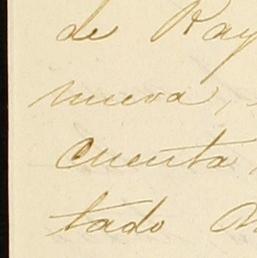 de Ray
nueva,
cuenta
tado